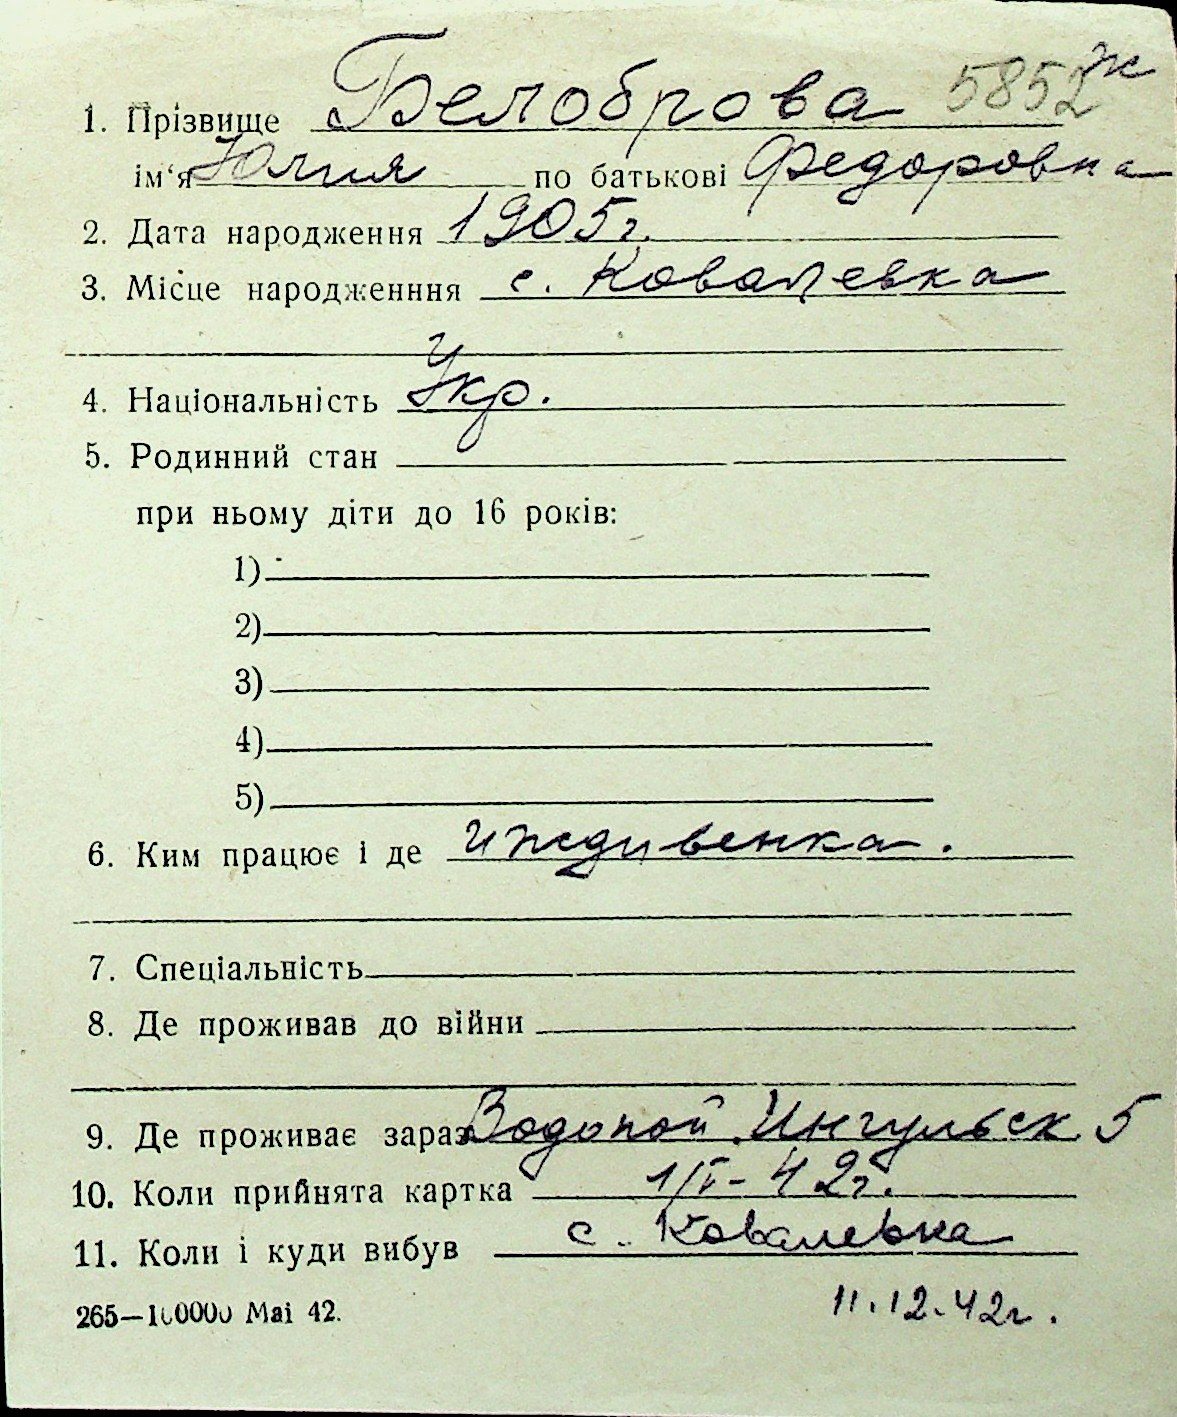 1. Прізвище Белоброва 5852 ж
ім‘я Юлия по батькові Федоровна
2. Дата народження 1905г.
3. Місце народженння с. Ковалевка
4. Національність Укр.
5. Родинний стан
при ньому діти до 16 років:
1)
2)
3)
4)
5)
6. Ким працює і де иждивенка.
7. Спеціальність
8. Де проживав до війни
9. Де проживає зараз Водопой Ингульск. 5
10. Коли прийнята картка 1/I-42г.
11. Коли і куди вибув с. Ковалевка
265—100000 Mai 42. 11.12.42г.